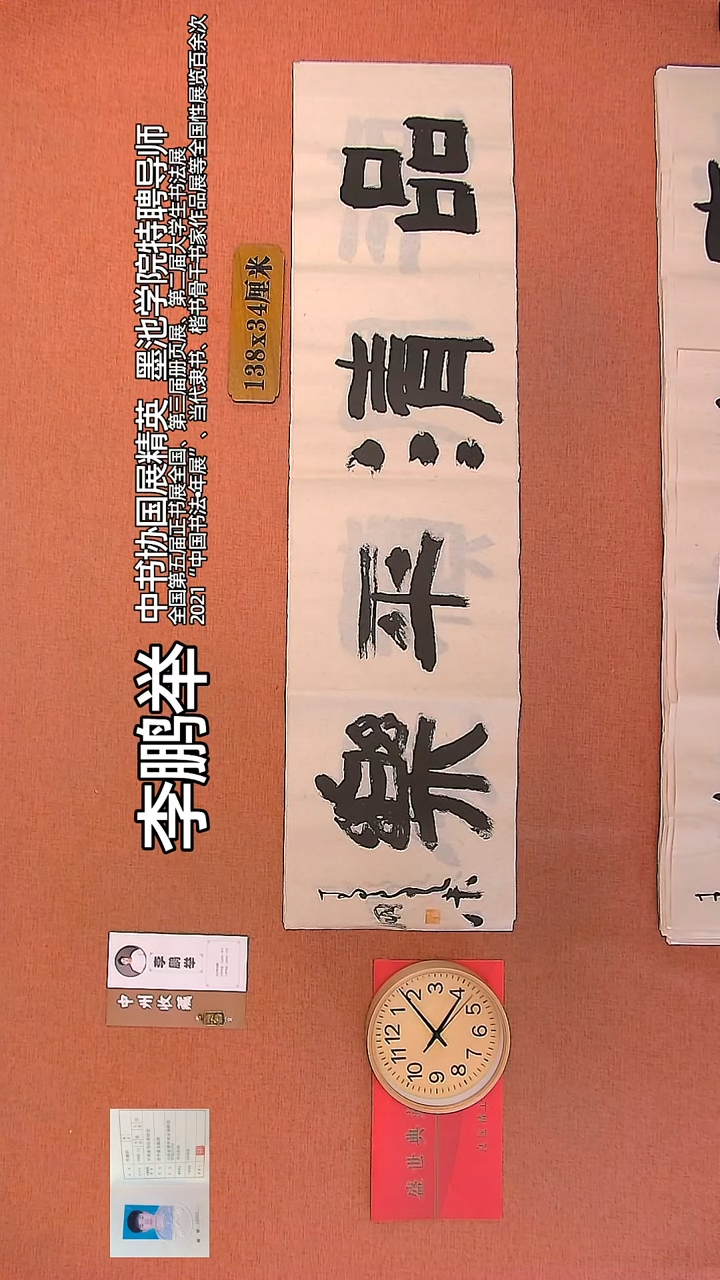 李鹏举
中书协国展精英 墨池学院特聘导师
全国第五届正书展全国、第三届册页展、第二届大学生书法展
2021“中国书法·年展”、当代隶书、楷书骨干书家作品展等全国性展览百余次
138x34厘米
品清平樂
李鹏举
中州收藏
盛世典
12
1
2
3
4
5
6
7
8
9
10
11